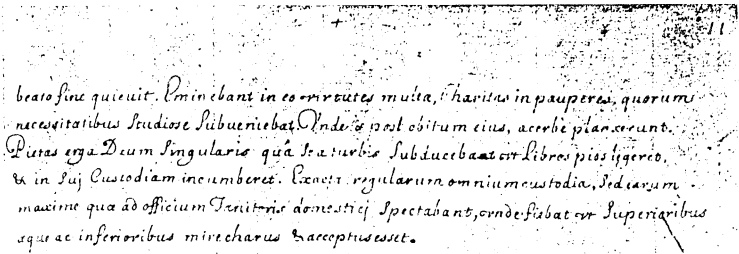 11
beato fine quieuit. Eminebant in eo virtutes multa, Charitas in pauperes, quorum
necessitatibus studiose subueniebat. Vnde post obitum eius, acerbe planxerunt.
Pietas erga Deum singularis quâ se a turbis subducebat vt libros pios legeret,
& in suj custodiam incumberet. Exacta regularum omnium custodia, sed earum
maxime quæ ad officium Janitoris domesticj spectabant, vnde fiebat vt superioribus
æque ac inferioribus mire charus & acceptus esset.